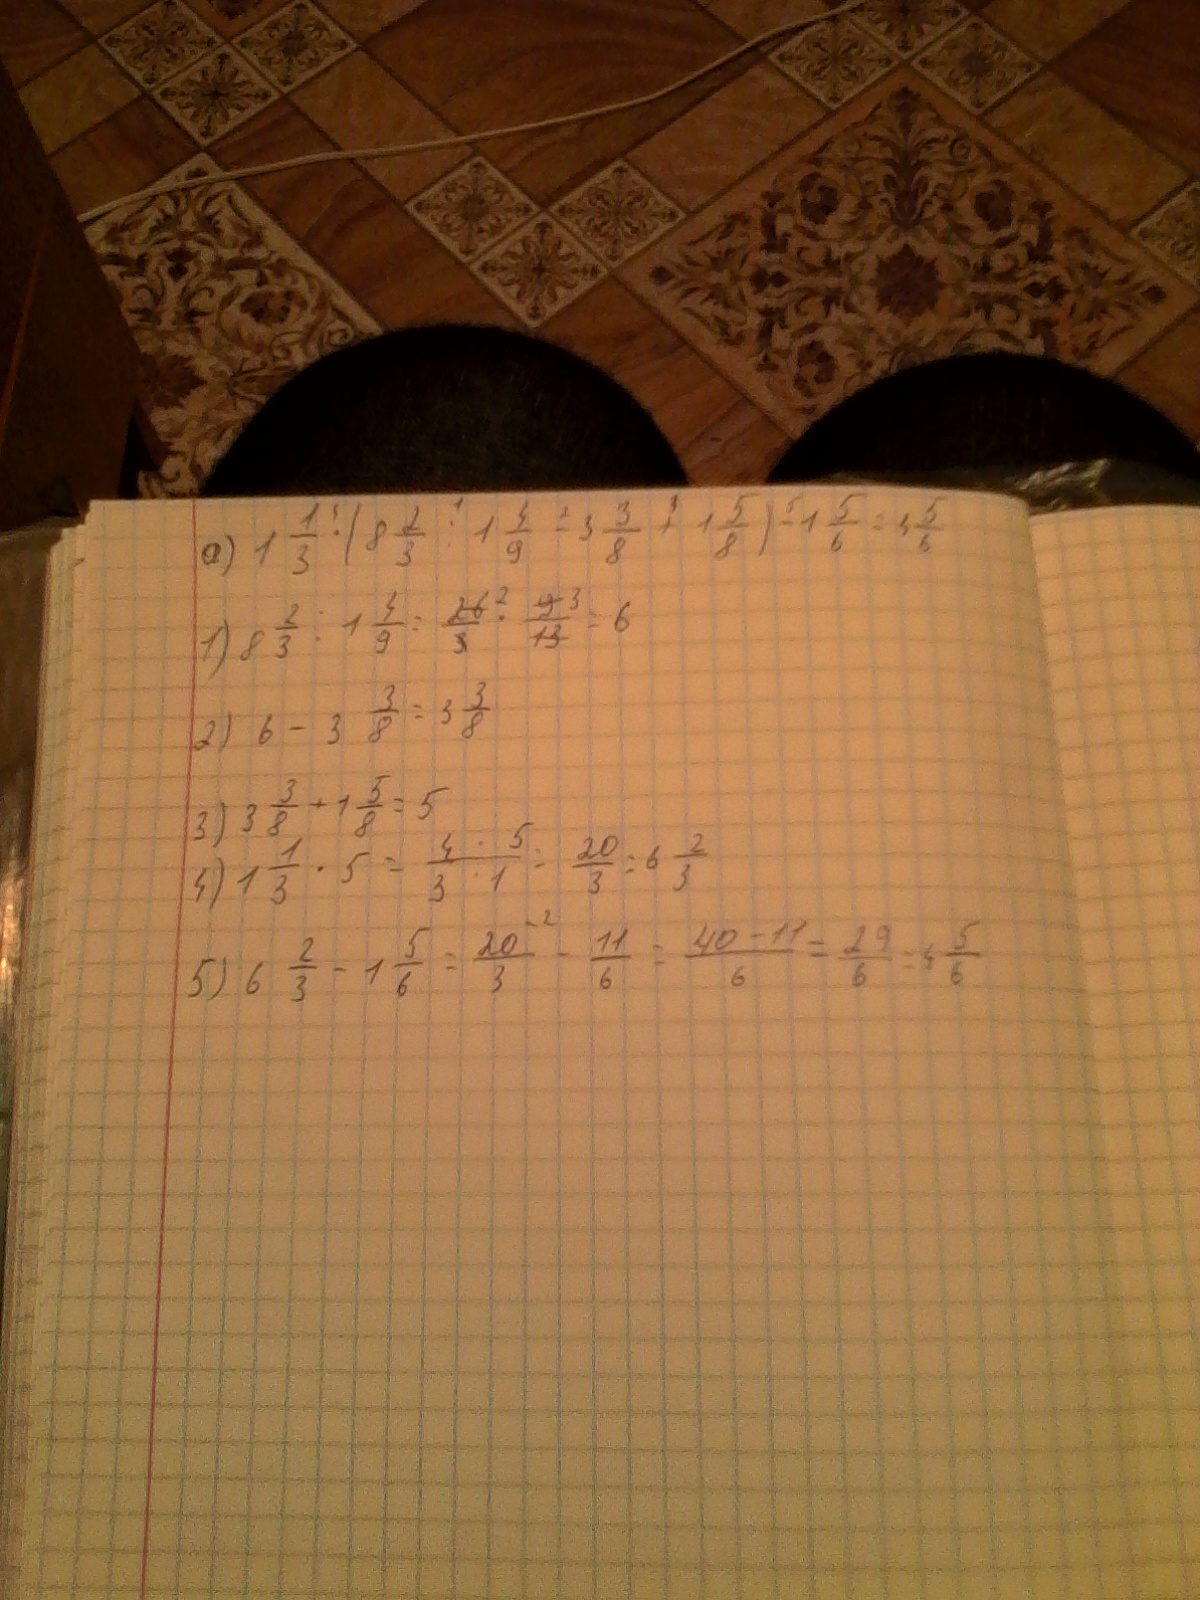 а) 1 1/3 · (8 2/3 : 1 4/9 - 3 3/8 + 1 5/8) - 1 5/6 = 4 5/6
1) 8 2/3 : 1 4/9 = 26/3 · 9/13 = 6
2) 6 - 3 3/8 = 3 3/8
3) 3 3/8 + 1 5/8 = 5
4) 1 1/3 · 5 = 4 · 5/3 · 1 = 20/3 = 6 2/3
5) 6 2/3 - 1 5/6 = 20/3 - 11/6 = 40 - 11/6 = 29/6 = 4 5/6